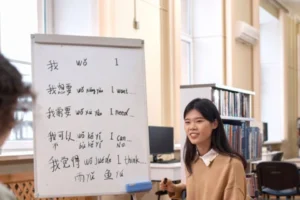 我 wǒ I
我想要 wǒ xiǎng yào I want...
我需要 wǒ xū yào I need...
我可以 wǒ kě yǐ I can
我觉得 wǒ jué de I think...